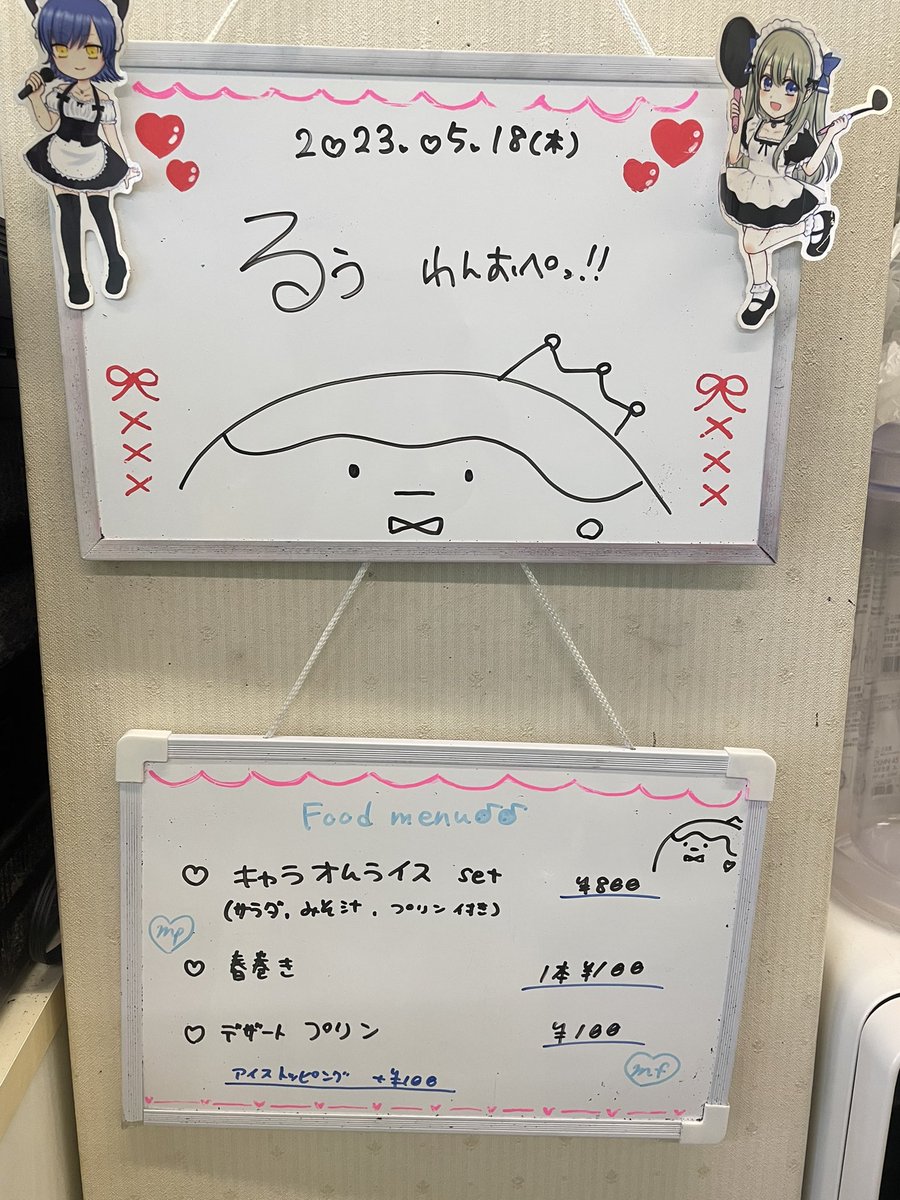 2023.05.18(木)
るぅ わんおぺっ!!
Food menu
キャラオムライス set ¥800
(サラダ、みそ汁、プリン付き)
mp
春巻き 1本 ¥100
デザート プリン ¥100
アイストッピング +¥100
mf